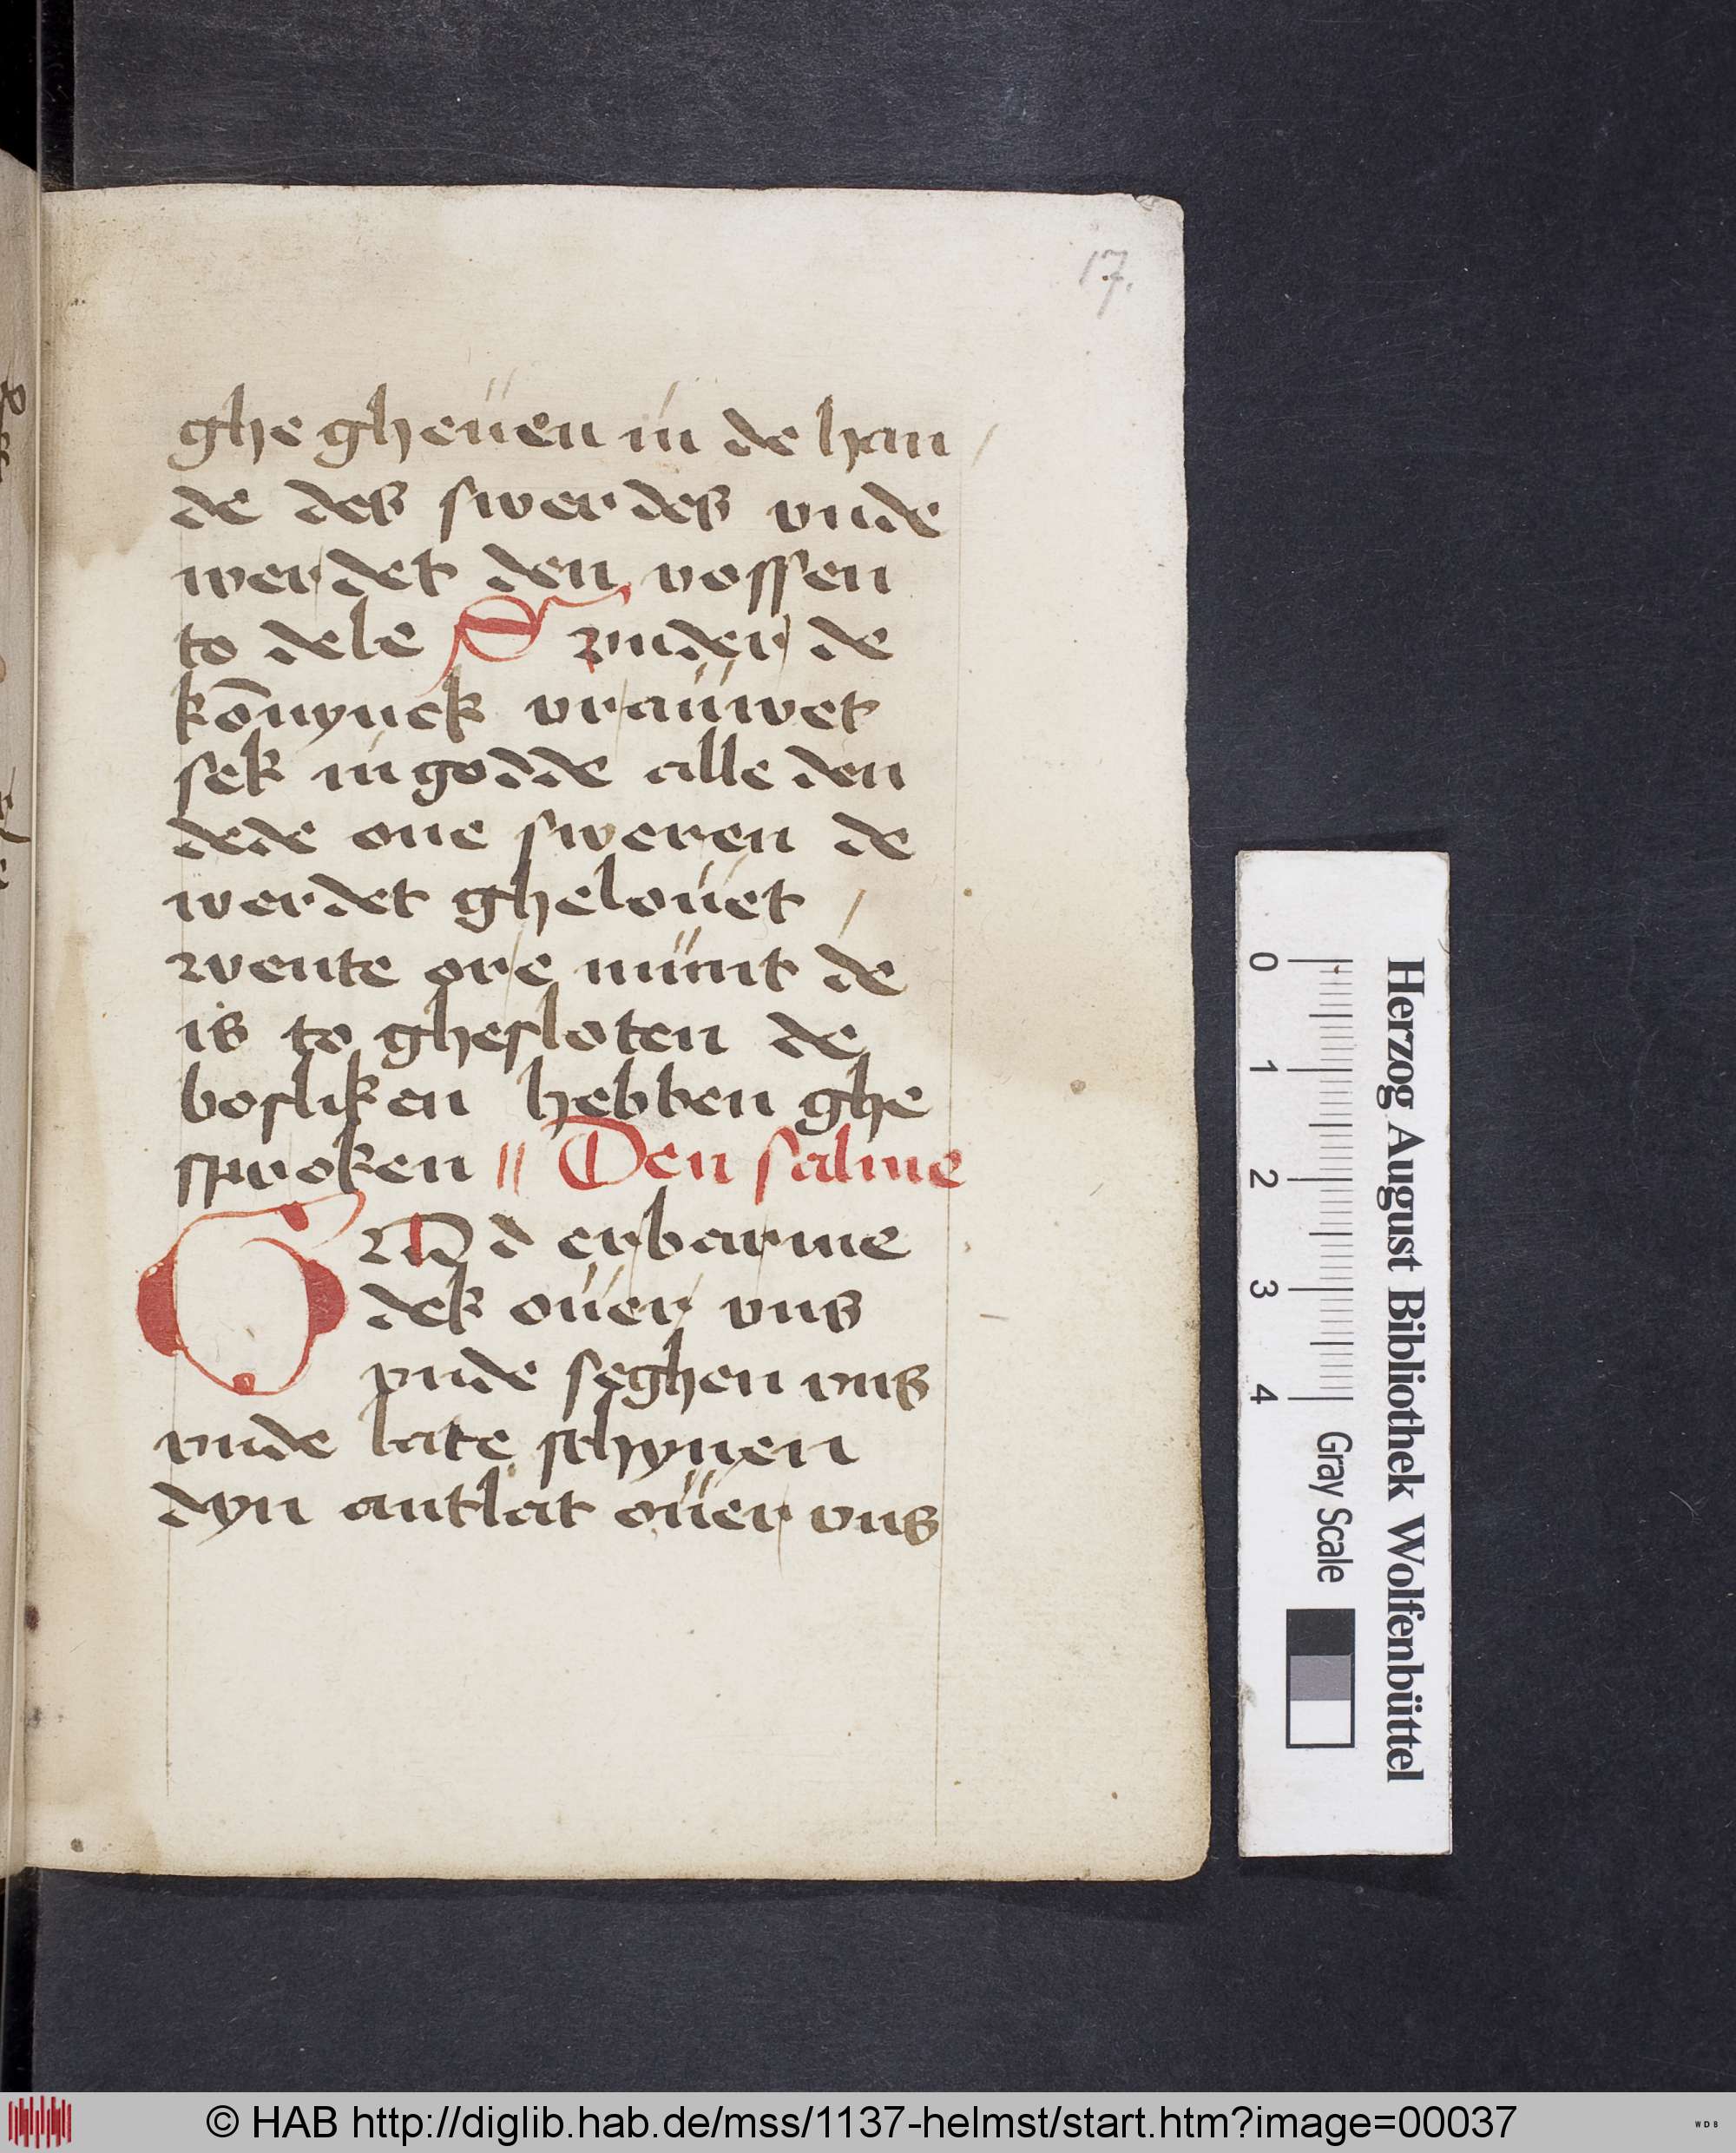 17.
ghe gheuen in de han/
de des swerdes vnde
werdet den vossen
to dele S vnder de
kōnynck vrauwet
sek in godde alle den
dede one sweren de
werdet ghelouet /
wente ore munt de
is to ghesloten de
bosliken hebben ghe
sproken || Den salme
GOd erbarme
dek ouer vns
vnde seghen vns
vnde late schynen
dyn antlat ouer vns
Herzog August Bibliothek Wolfenbüttel
0 1 2 3 4 Gray Scale
© HAB http://diglib.hab.de/mss/1137-helmst/start.htm?image=00037
WDB